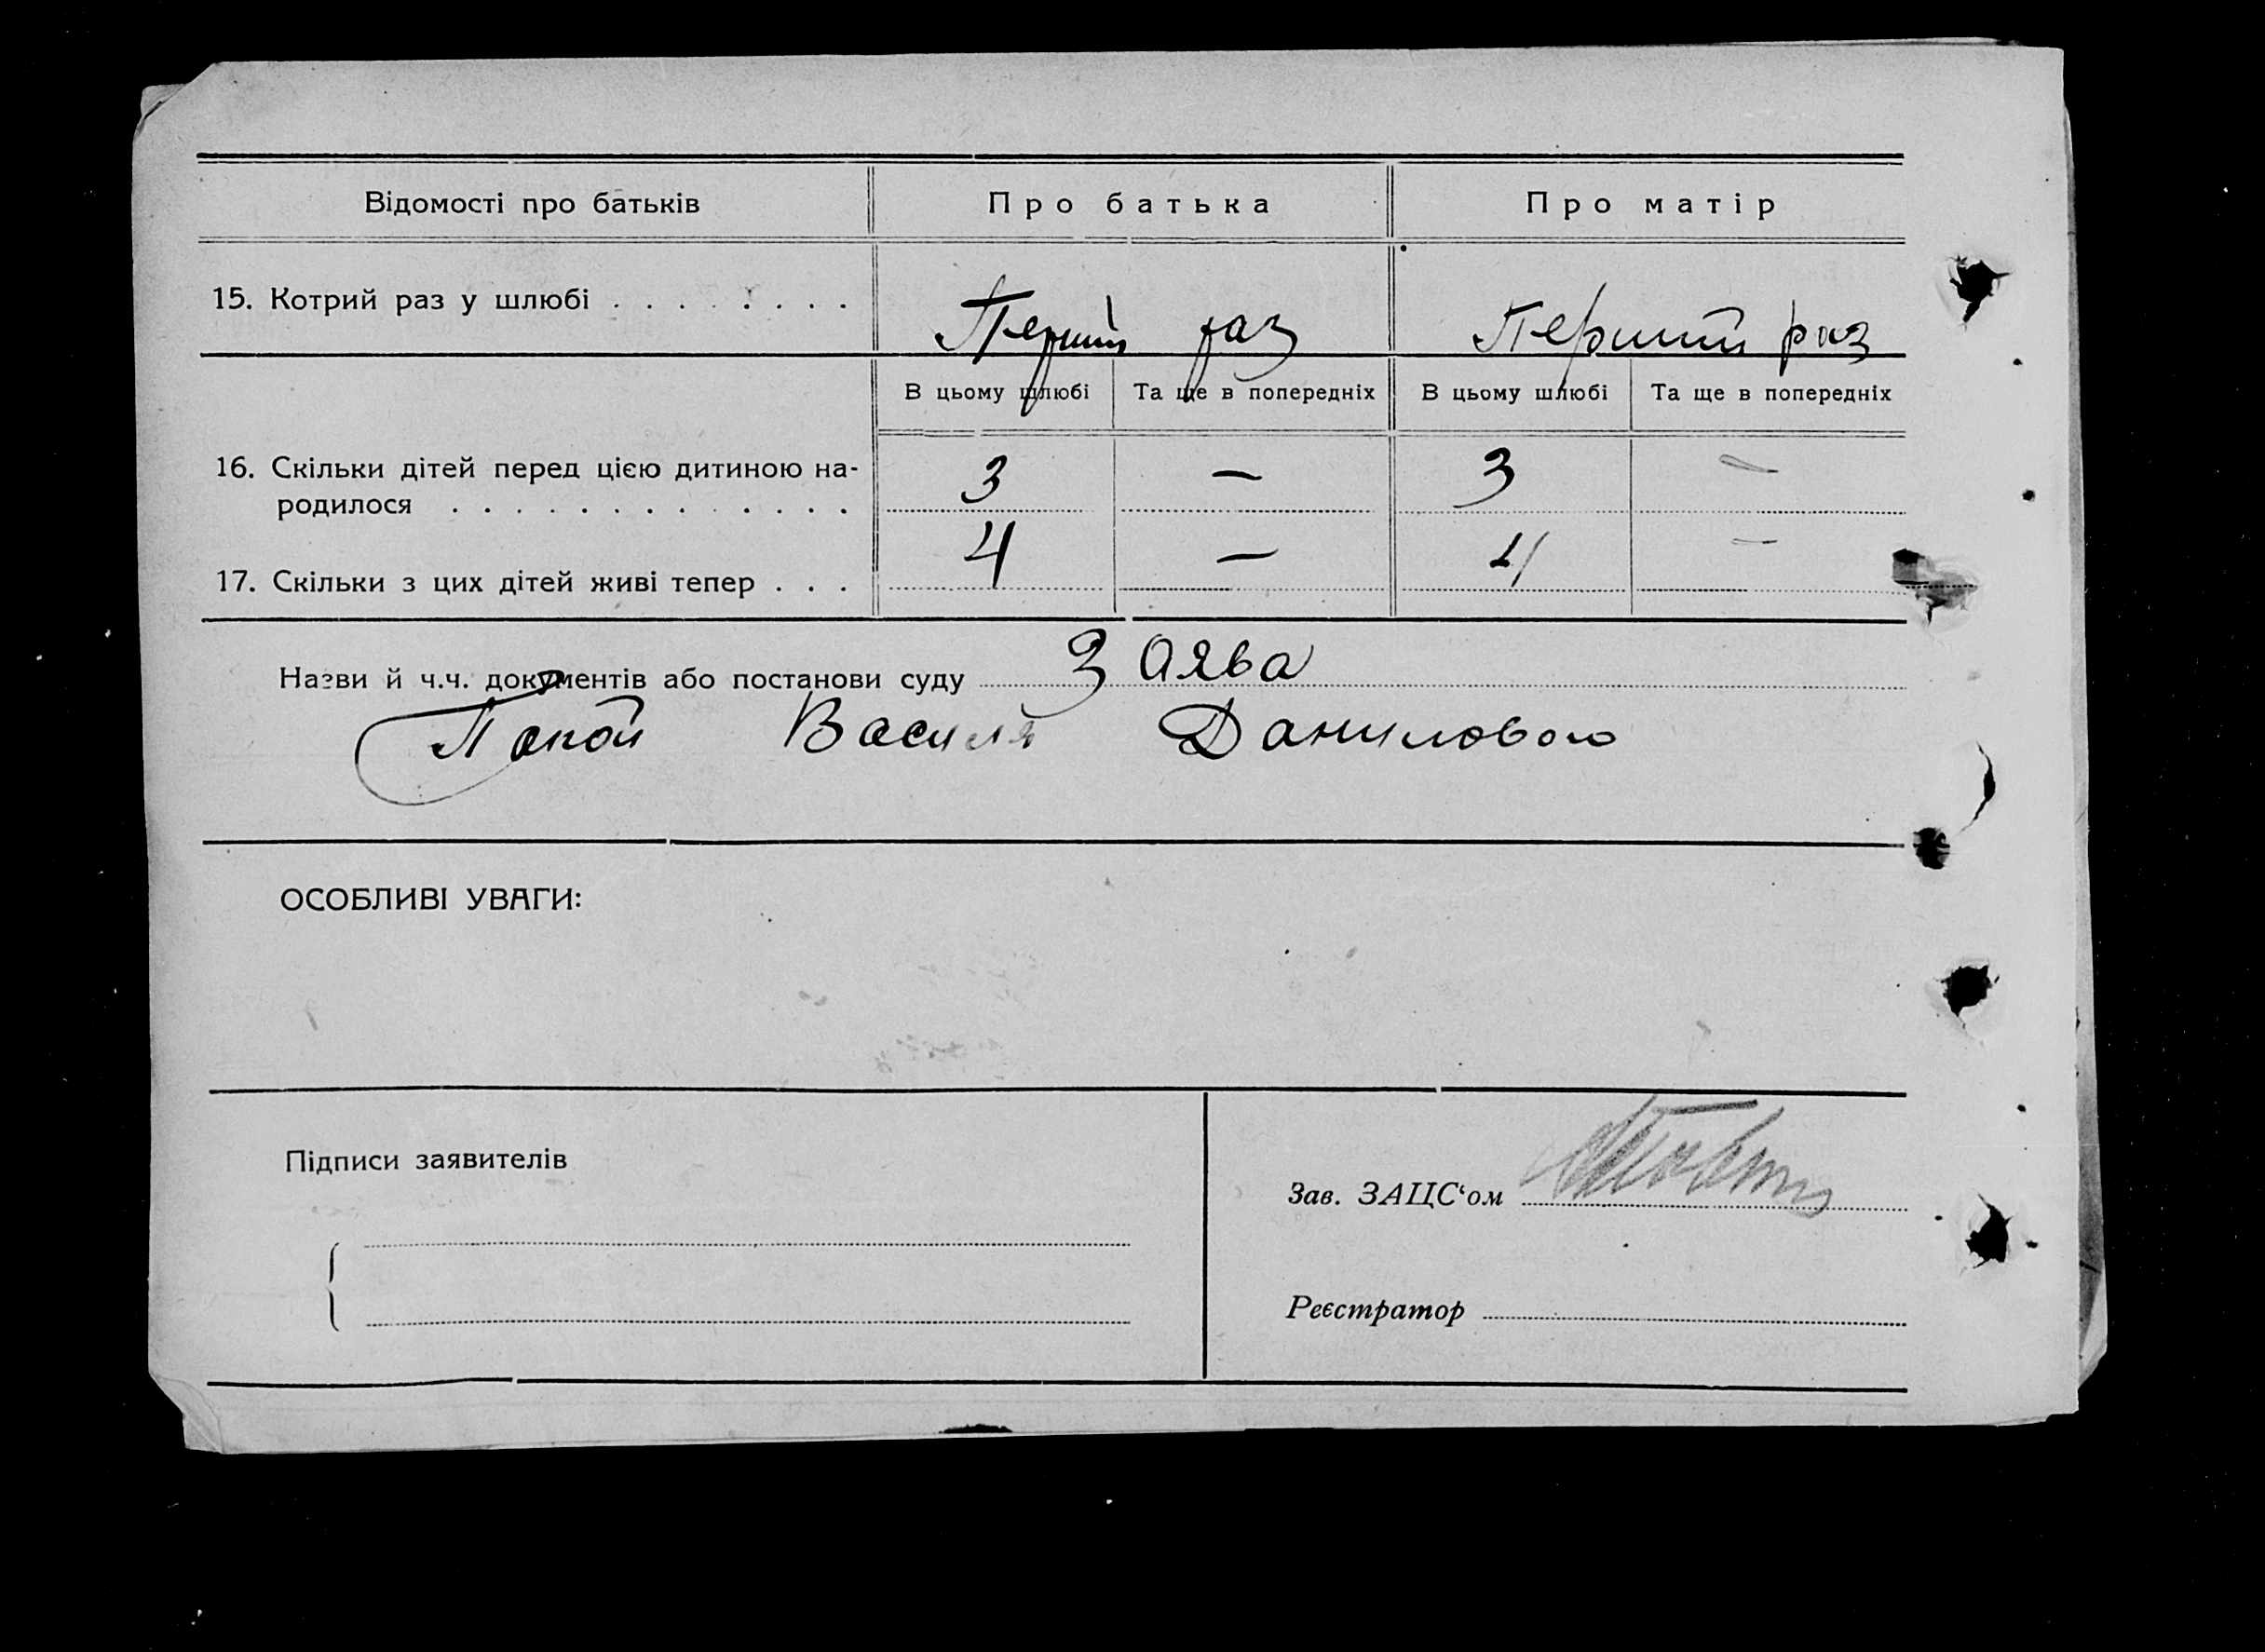 Відомості про батьків Про батька Про матір
15. Котрий раз у шлюбі . . . . . . . . Перший раз Перший раз
В цьому шлюбі Та ще в попередніх В цьому шлюбі Та ще в попередніх
16. Скільки дітей перед цією дитиною на-
родилося . . . . . . . . . . . . . 3 — 3 —
17. Скільки з цих дітей живі тепер . . . 4 — 4 —
Назви й ч.ч. документів або постанови суду Заява
Василя Данилового
ОСОБЛИВІ УВАГИ:
Підписи заявителів
Зав. ЗАЦС‘ом
Реєстратор